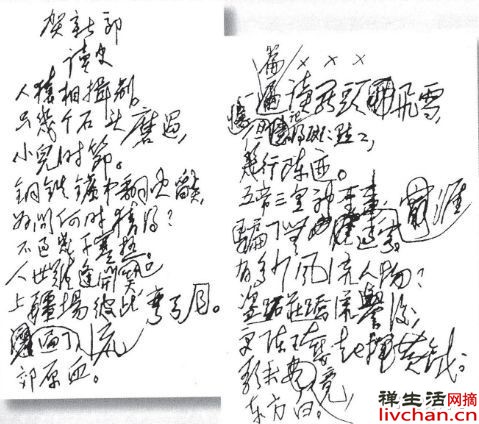 贺新郎
读史
人猿相揖别。
只几个石头磨过,
小儿时节。
铜铁炉中翻火焰,
为问何时猜得?
不过几千寒热。
人世难逢开口笑
上疆場彼此弯弓月。
遍了 流
郊原血。
篇 / x x x
一篇读罢頭飛雪,
记得斑斑点点,
几行陈迹。
五帝三皇神聖事,
骗了无涯过客。
有多少风流人物?
盗跖庄蹻流誉後,
更陈王奋起挥黄钺。
歌未竟,
东方白。
禅生活网摘
livchan.cn